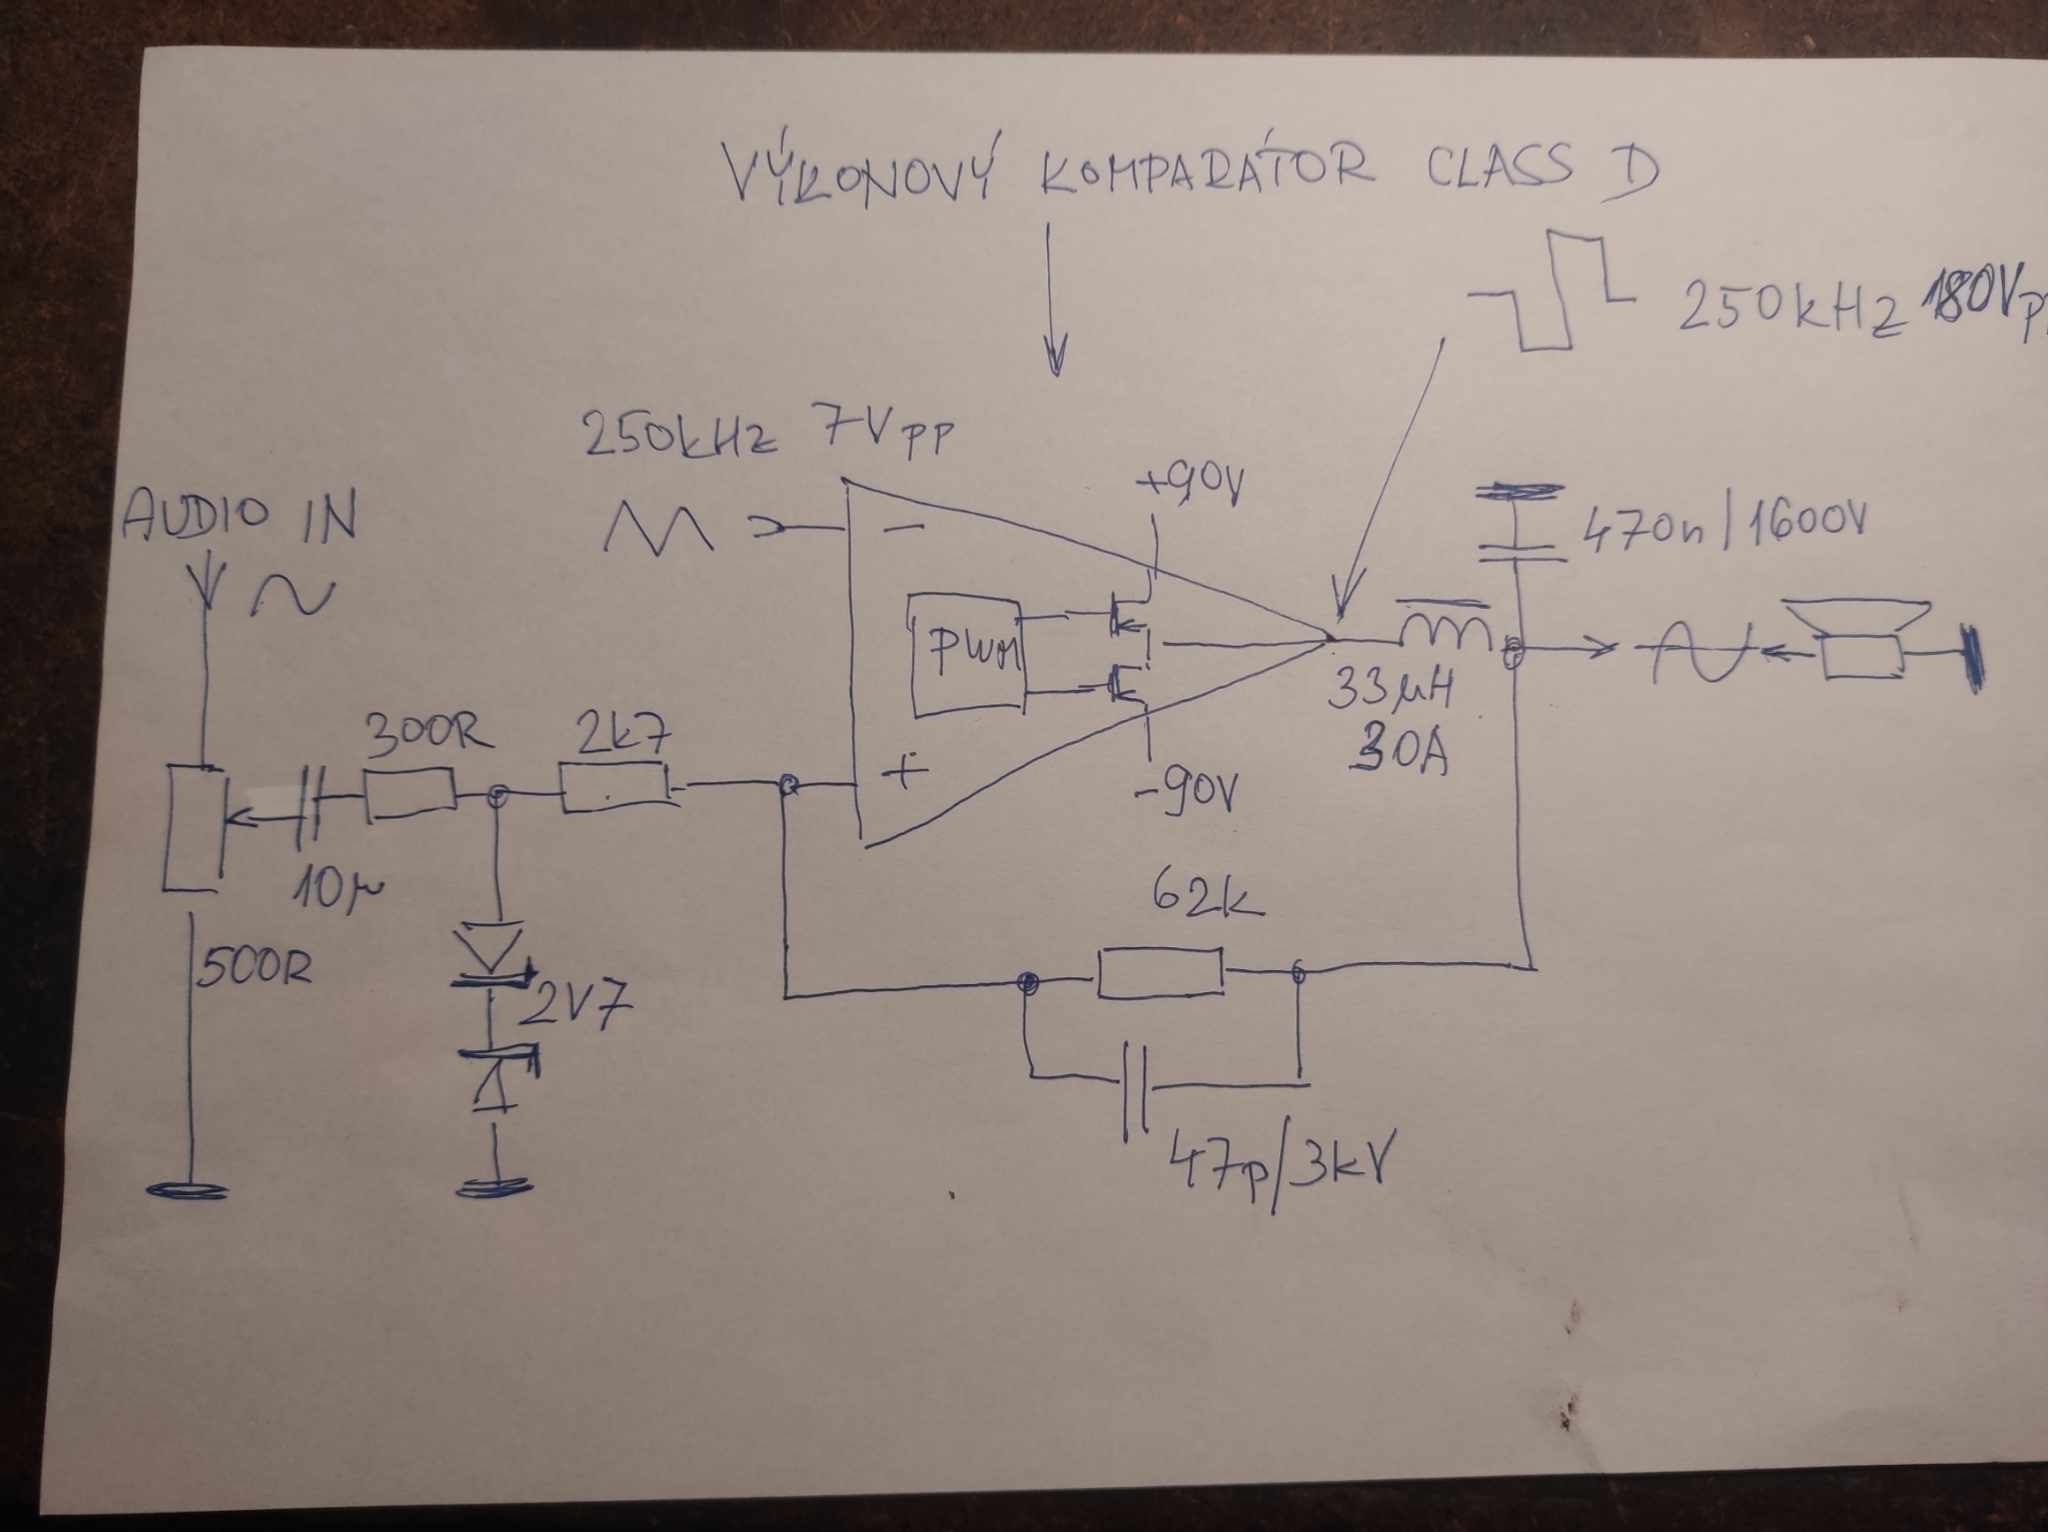 VÝKONOVÝ KOMPARÁTOR CLASS D
250kHz 180Vpp
250kHz 7Vpp
+90V
AUDIO IN
470n/1600V
-
PWM
33µH
30A
300R
2k7
+
-90V
10µ
62k
500R
2V7
47p/3kV